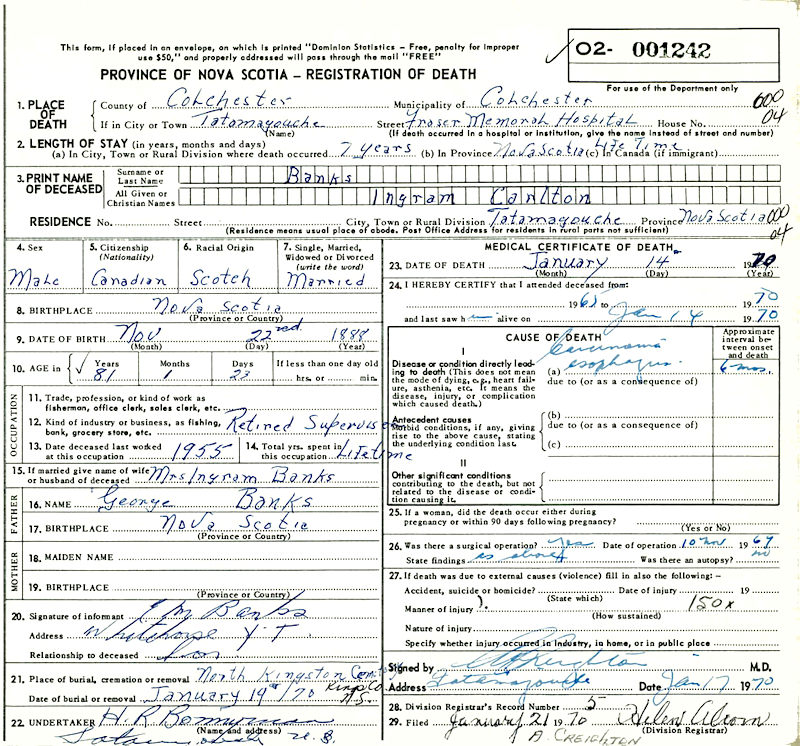 This form, if placed in an envelope, on which is printed "Dominion Statistics - Free, penalty for improper
use $50," and properly addressed will pass through the mail "FREE"
O2- 001242
PROVINCE OF NOVA SCOTIA - REGISTRATION OF DEATH
For use of the Department only
600
04
1. PLACE OF DEATH County of Colchester Municipality of Colchester
If in City or Town Tatamagouche Street Fraser Memorial Hospital House No.
(Name) (If death occurred in a hospital or institution, give the name instead of street and number)
2. LENGTH OF STAY (in years, months and days)
(a) In City, Town or Rural Division where death occurred 7 years (b) In Province Nova Scotia (c) In Canada (if immigrant) Life Time
3. PRINT NAME OF DECEASED Surname or Last Name Banks
All Given or Christian Names Ingram Carlton
RESIDENCE No. Street City, Town or Rural Division Tatamagouche Province Nova Scotia 000
04
(Residence means usual place of abode. Post Office Address for residents in rural parts not sufficient)
4. Sex Male
5. Citizenship (Nationality) Canadian
6. Racial Origin Scotch
7. Single, Married, Widowed or Divorced (write the word) Married
8. BIRTHPLACE Nova Scotia
(Province or Country)
9. DATE OF BIRTH Nov 22nd 1888
(Month) (Day) (Year)
10. AGE in Years 81 Months 1 Days 23 If less than one day old
hrs. or min.
OCCUPATION
11. Trade, profession, or kind of work as
fisherman, office clerk, sales clerk, etc.
12. Kind of industry or business, as fishing,
bank, grocery store, etc. Retired Supervisor
13. Date deceased last worked at this occupation 1955
14. Total yrs. spent in this occupation Lifetime
15. If married give name of wife
or husband of deceased Mrs Ingram Banks
FATHER
16. NAME George Banks
17. BIRTHPLACE Nova Scotia
(Province or Country)
MOTHER
18. MAIDEN NAME
19. BIRTHPLACE
(Province or Country)
20. Signature of informant Banks
Address Whitehorse Y.T
Relationship to deceased Son
21. Place of burial, cremation or removal North Kingston
Date of burial or removal January 19th/70 Kings Co. N.S.
22. UNDERTAKER H. R. Bonnyman
(Name and address)
MEDICAL CERTIFICATE OF DEATH
23. DATE OF DEATH January 14 1970
(Month) (Day) (Year)
24. I HEREBY CERTIFY that I attended deceased from:
1965 to Jan 14 70
and last saw h alive on 1970
CAUSE OF DEATH
Approximate interval between onset and death
I
Disease or condition directly leading to death (This does not mean
the mode of dying, e.g., heart failure, asthenia, etc. It means the
disease, injury, or complication
which caused death.)
(a) Carcinoma esophagus 6 mos.
due to (or as a consequence of)
Antecedent causes
Morbid conditions, if any, giving
rise to the above cause, stating
the underlying condition last.
(b)
due to (or as a consequence of)
(c)
II
Other significant conditions
contributing to the death, but not
related to the disease or condition causing it.
25. If a woman, did the death occur either during
pregnancy or within 90 days following pregnancy?
(Yes or No)
26. Was there a surgical operation? yes Date of operation 10 Nov 1969
State findings as above Was there an autopsy? no
27. If death was due to external causes (violence) fill in also the following: -
Accident, suicide or homicide? Date of injury 19
(State which)
Manner of injury 150x
(How sustained)
Nature of injury
Specify whether injury occurred in industry, in home, or in public place
Signed by Creighton M.D.
Address Tatamagouche Date Jan 17 1970
28. Division Registrar's Record Number 5
29. Filed January 21 1970
(Division Registrar)
A. CREIGHTON